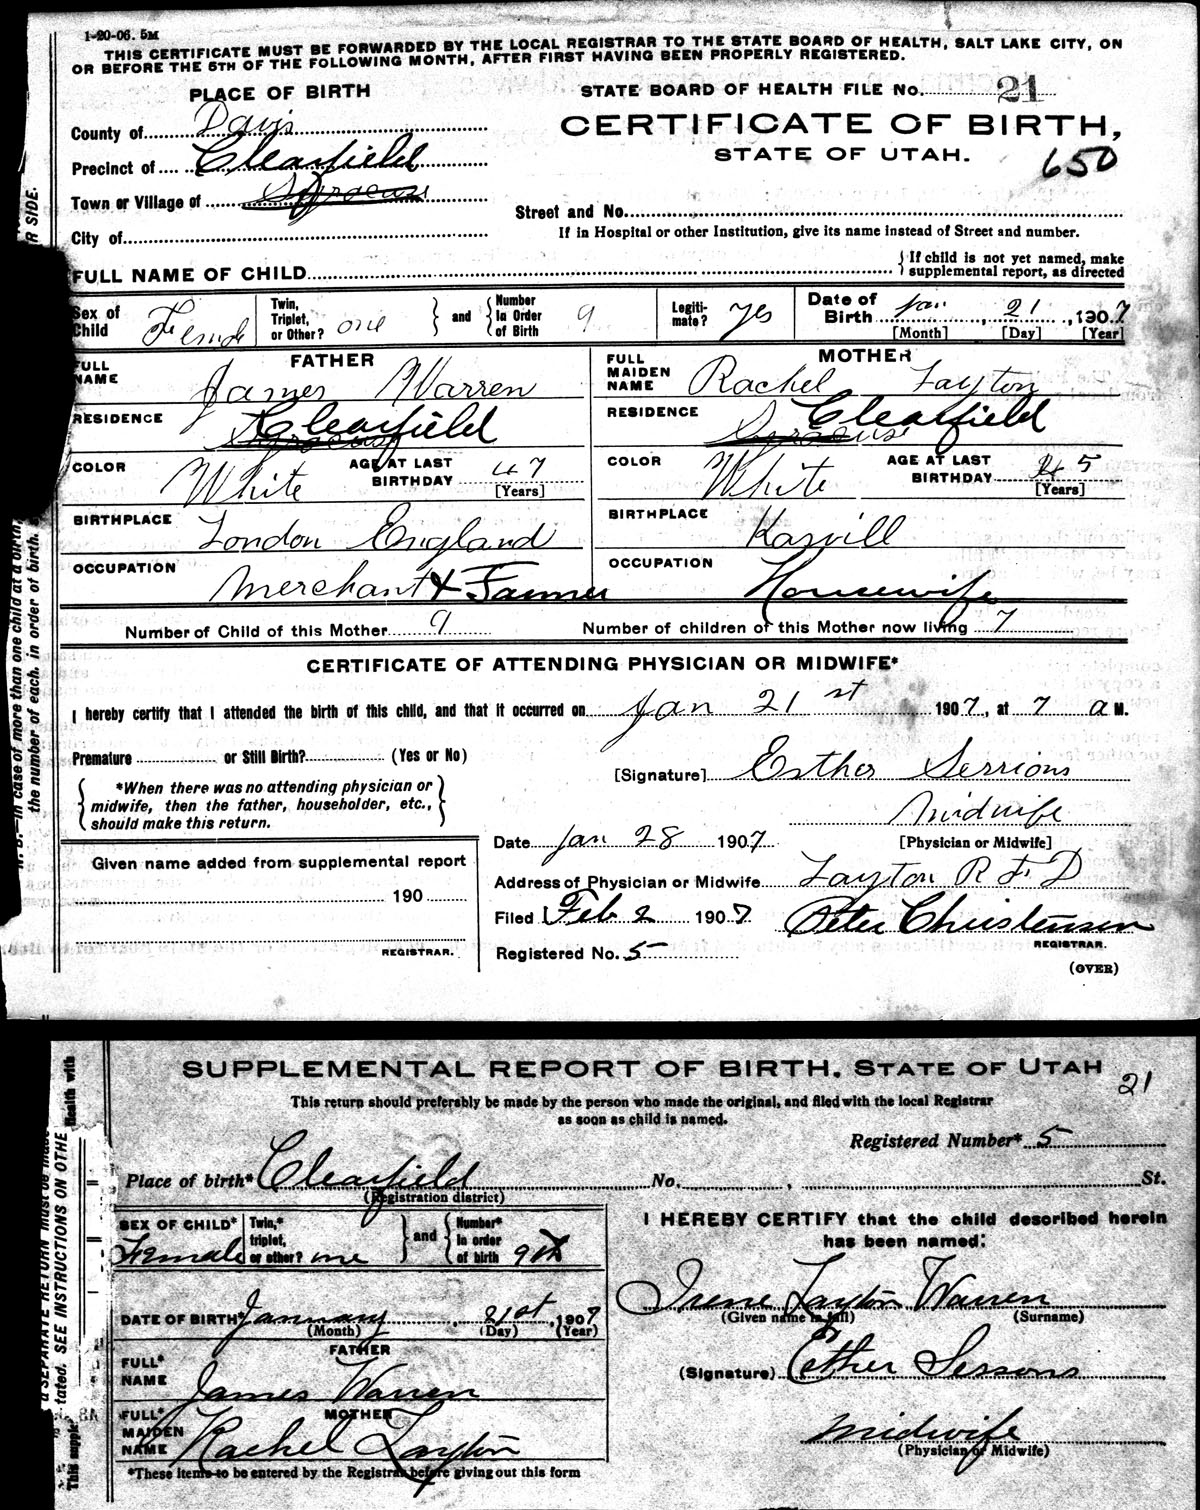 1-20-06. 5M
THIS CERTIFICATE MUST BE FORWARDED BY THE LOCAL REGISTRAR TO THE STATE BOARD OF HEALTH, SALT LAKE CITY, ON
OR BEFORE THE 5TH OF THE FOLLOWING MONTH, AFTER FIRST HAVING BEEN PROPERLY REGISTERED.
PLACE OF BIRTH
STATE BOARD OF HEALTH FILE No. 21
County of Davis
CERTIFICATE OF BIRTH,
Precinct of Clearfield
STATE OF UTAH.
650
Town or Village of Syracuse
Street and No.
City of
If in Hospital or other Institution, give its name instead of Street and number.
FULL NAME OF CHILD
{If child is not yet named, make
supplemental report, as directed
Sex of Child Female
Twin, Triplet, or Other? one
and
Number In Order of Birth 9
Legiti-mate? yes
Date of Birth Jan. 21, 1907
[Month] [Day] [Year]
FATHER
FULL NAME James Warren
RESIDENCE Syracuse Clearfield
COLOR White
AGE AT LAST BIRTHDAY 47
[Years]
BIRTHPLACE London England
OCCUPATION Merchant & Farmer
MOTHER
FULL MAIDEN NAME Rachel Layton
RESIDENCE Syracuse Clearfield
COLOR White
AGE AT LAST BIRTHDAY 45
[Years]
BIRTHPLACE Kasvill
OCCUPATION Housewife
Number of Child of this Mother 9
Number of children of this Mother now living 7
CERTIFICATE OF ATTENDING PHYSICIAN OR MIDWIFE*
I hereby certify that I attended the birth of this child, and that it occurred on Jan 21st 1907, at 7 a M.
Premature or Still Birth? (Yes or No)
[Signature] Esther Serrions
*When there was no attending physician or
midwife, then the father, householder, etc.,
should make this return.
Midwife
[Physician or Midwife]
Date Jan 28 1907
Given name added from supplemental report
190
REGISTRAR.
Address of Physician or Midwife Layton R F D
Filed Feb 2 1907 Peter Christensen
REGISTRAR.
Registered No. 5
(OVER)
R SIDE.
N. B.—In case of more than one child at a birth,
the number of each, in order of birth.
SUPPLEMENTAL REPORT OF BIRTH, STATE OF UTAH 21
This return should preferably be made by the person who made the original, and filed with the local Registrar
as soon as child is named.
Registered Number* 5
Place of birth* Clearfield No. , St.
(Registration district)
SEX OF CHILD* Female
Twin,* triplet, or other? one
and
Number* In order of birth 9th
DATE OF BIRTH* January 21st, 1907
(Month) (Day) (Year)
FATHER
FULL* NAME James Warren
MOTHER
FULL* MAIDEN NAME Rachel Layton
*These items to be entered by the Registrar before giving out this form
I HEREBY CERTIFY that the child described herein
has been named:
Irene Layton Warren
(Given name in full) (Surname)
(Signature) Esther Sessons
Midwife
(Physician or Midwife)
SEPARATE RETURN must be made
tated. SEE INSTRUCTIONS ON OTHE
Health with
This supple